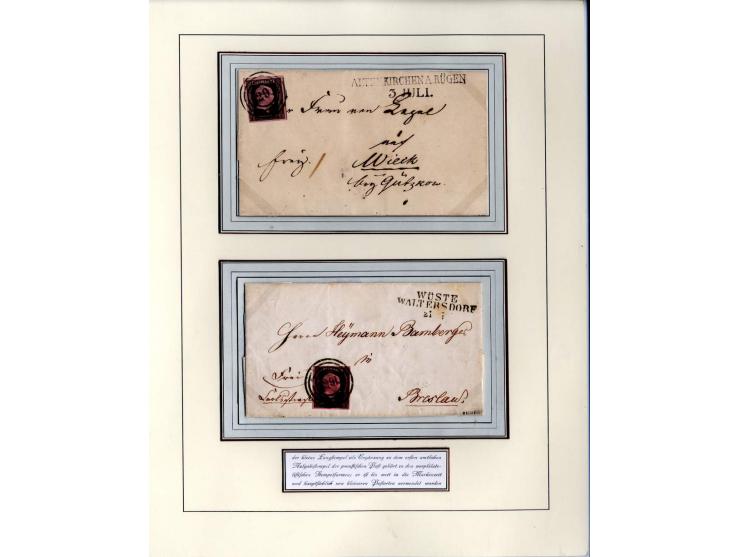 20
ALTENKIRCHEN A.RÜGEN
3 JULI.
Frau von
nach
Wieck
frey.
bey Gützkow.
WÜSTE
WALTERSDORF
21
Herrn Heÿmann Bamberger
in
Frei
Breslau.
der kleine Langstempel als Ergänzung zu dem ersten amtlichen
Aufgabestempel der preußischen Post gehört zu den vorphilate-
listischen Stempelformen; er ist bis weit in die Markenzeit
und hauptsächlich von kleineren Postorten verwendet worden